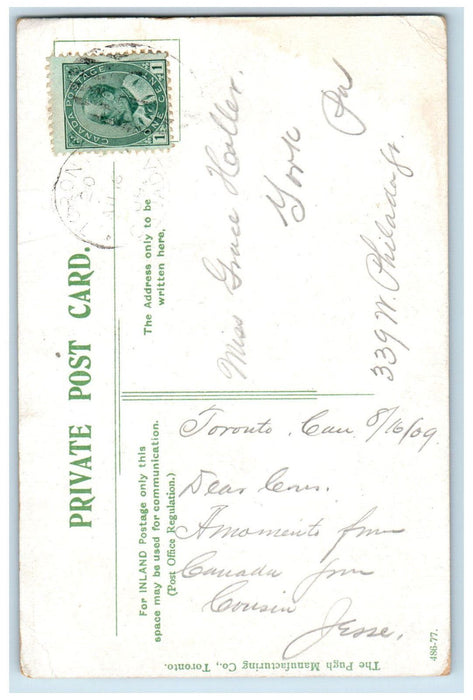 PRIVATE POST CARD.
CANADA POSTAGE
1 ONE CENT 1
The Address only to be
written here.
Miss Grace Haller.
York Pa
339 W. Philada St.
For INLAND Postage only this
space may be used for communication.
(Post Office Regulation.)
Toronto, Can 8/16/09
Dear Cous.
A momento from
Canada from
Cousin
Jesse.
The Pugh Manufacturing Co., Toronto.
486-77.